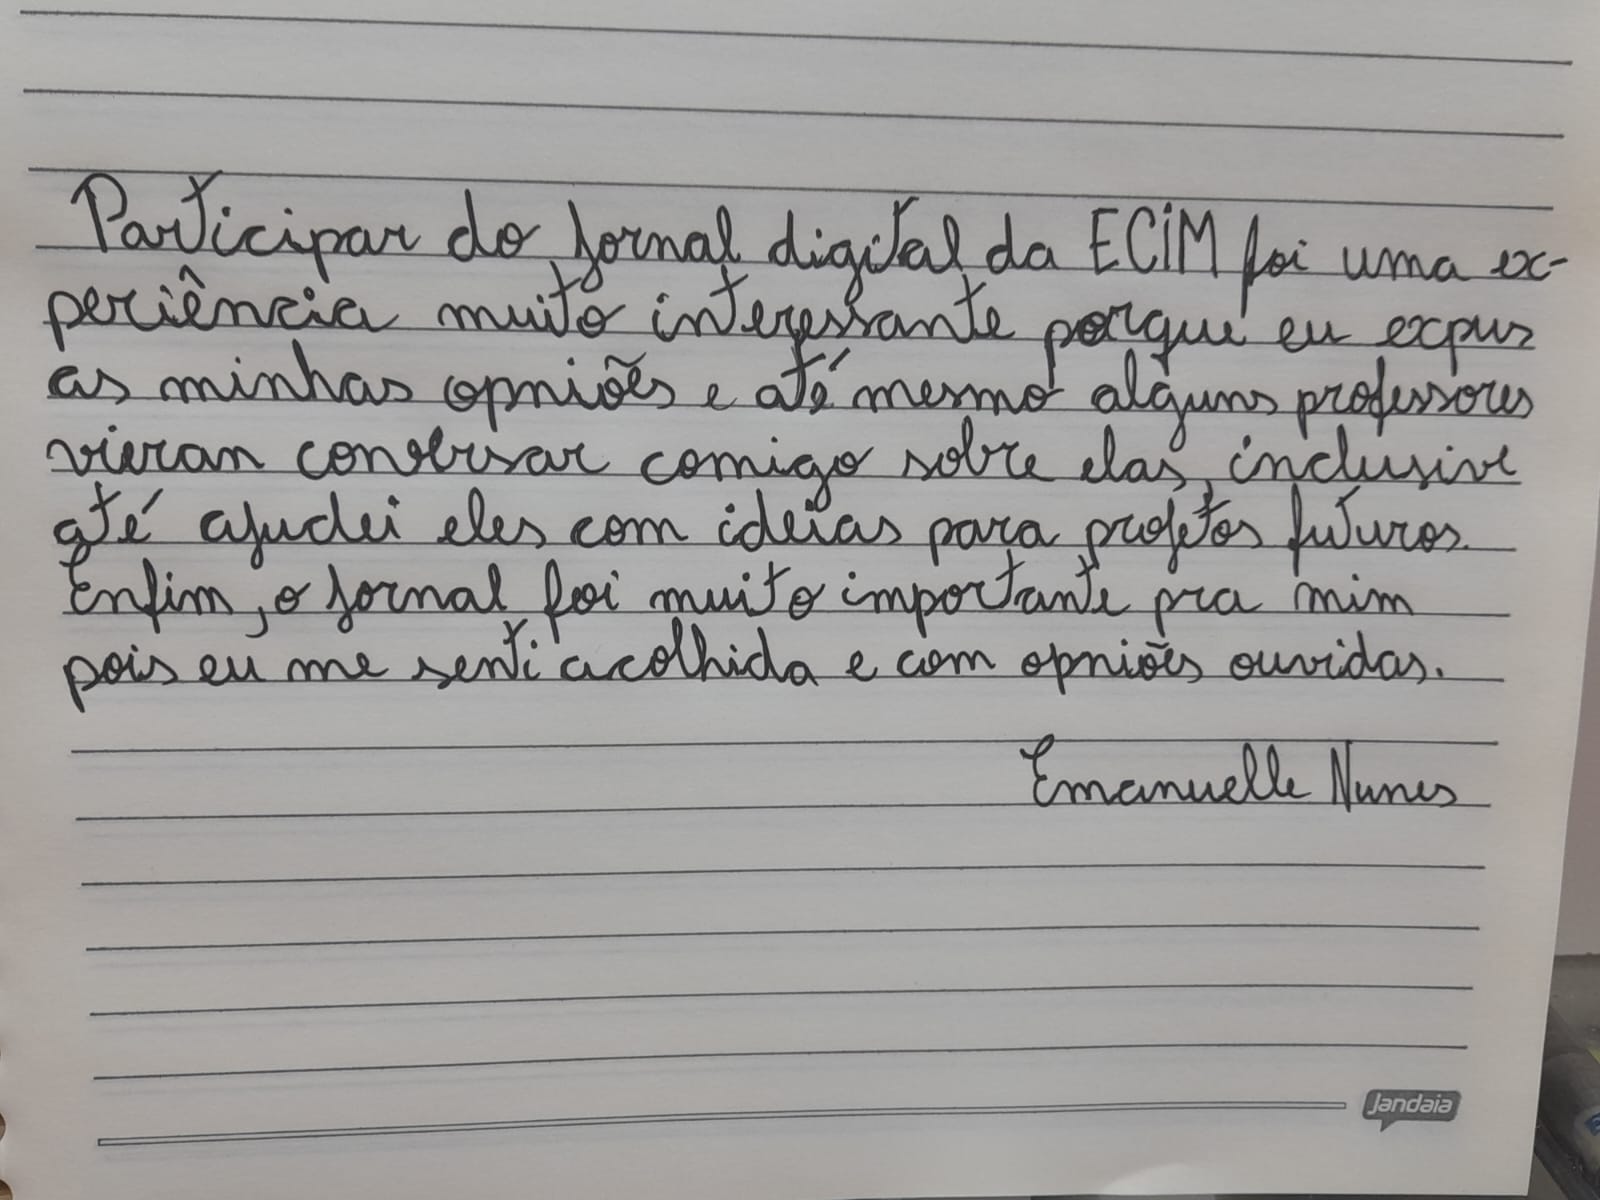 Participar do jornal digital da ECIM foi uma ex-
periência muito interessante porque eu expus
as minhas opniões e até mesmo alguns professores
vieram conversar comigo sobre elas, inclusive
até ajudei eles com ideias para projetos futuros.
Enfim, o jornal foi muito importante pra mim
pois eu me senti acolhida e com opniões ouvidas.
Emanuelle Nunes
Jandaia